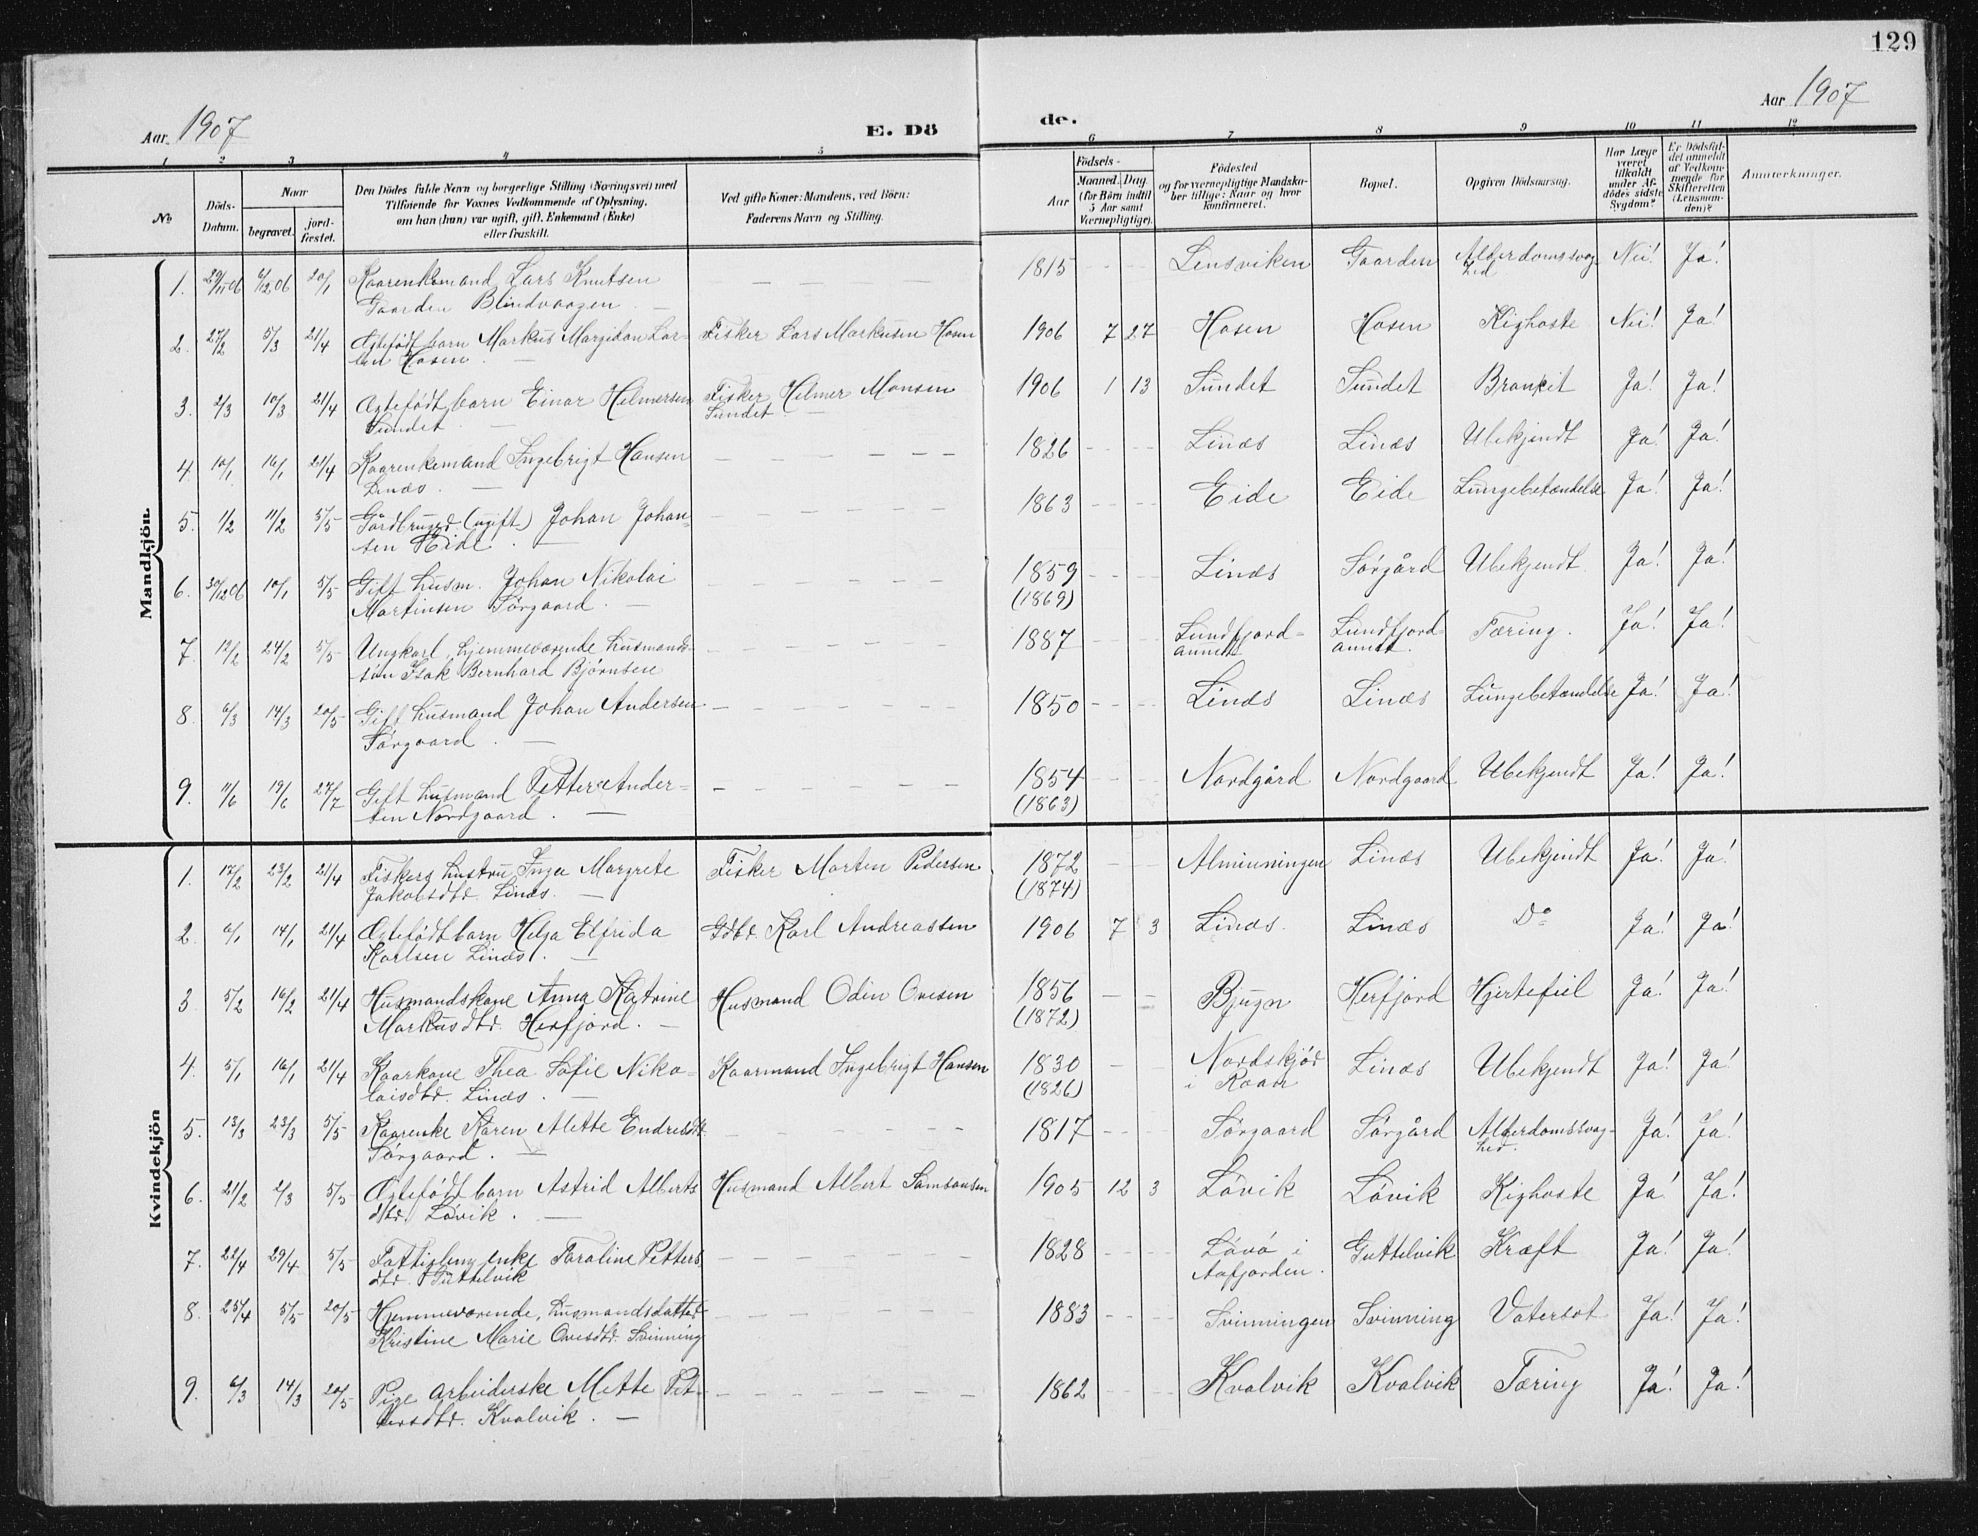 129
Aar 1907
E. Dö
de.
Aar 1907
1 2 3 4 5
6 7 8 9 10 11 12
No
Döds-Datum.
Naar
begravet.
jord-fæstet.
Den Dödes fulde Navn og borgerlige Stilling (Næringsvei) med
Tilföiende for Voxnes Vedkommende af Oplysning,
om han (hun) var ugift, gift, Enkemand (Enke)
eller fraskilt.
Ved gifte Koner: Mandens, ved Börn:
Faderens Navn og Stilling.
Födsels-
Aar
Maaned. Dag
(for Börn indtil
5 Aar samt
Værnepligtige).
Födested
og for værnepligtige Mandska-
ber tillige: Naar og hvor
konfirmeret.
Bopæl.
Opgiven Dödsaarsag.
Har Læge
været
tilkaldt
under Af-
dödes sidste
Sygdom?
Er Dödsfal-
det anmeldt
af Vedkom-
mende for
Skifteretten
(Lensman-
den)?
Anmærkninger.
Mandkjön.
1. 29/11 06 6/12 06 20/1 Kaarenkemand Lars Knutsen — — — — 1815 - - - Lensviken Gaarden Alderdomssvag Nei! Ja!
Gaarden Blindvaagen — hed
2. 27/2 5/3 21/4 Ægtefödt barn Markus Margidon Lar- Fisker Lars Markusen Hosen 1906 7 27 Hosen Hosen Kighoste Nei! Ja!
sen Hosen. —
3. 2/3 10/3 21/4 Ægtefödt barn Einar Helmersen Fisker Helmer Monsen 1906 1 13 Sundet Sundet Bronkit Ja! Ja!
Sundet — Sundet. —
4. 10/1 16/1 21/4 Kaarenkemand Ingebrigt Hansen — — — — 1826 - - - Linæs Linæs Ubekjendt Ja! Ja!
Linæs. —
5. 1/2 11/2 5/5 Gårdbruger (ugift) Johan Johan- — — — — 1863 - - - Eide Eide Lungebetændelse Ja! Ja!
sen Eide. —
6. 30/12 06 10/1 5/5 Gift husm. Johan Nikolai — — — — 1859 - - - Linæs Sörgård Ubekjendt. Ja! Ja!
Martinsen Sörgaard. — (1869)
7. 12/2 24/2 5/5 Ungkarl, hjemmeværende husmands- — — — — 1887 - - - Lundfjord- Lundfjord- Tæring. Ja! Ja!
sön Isak Bernhard Björnsen
8. 6/3 14/3 20/5 Gift husmand Johan Andersen — — — — 1850 - - - Linæs Linæs Lungebetændelse Ja! Ja!
Sörgaard. —
9. 11/6 19/6 27/7 Gift husmand Petter Ander- — — — — 1854 - - - Nordgård Nordgaard Ubekjendt Ja! Ja!
sen Nordgaard. — (1863)
Kvindekjön
1. 17/2 23/2 21/4 Fiskers hustru Inga Margrete Fisker Morten Pedersen 1872 - - Alminningen Linæs Ubekjendt Ja! Ja!
Jakobsdtr. Linæs. — (1874)
2. 6/1 14/1 21/4 Ægtefödt barn Helga Elfrida Gdbr. Karl Andreassen 1906 7 3 Linæs. Linæs Do Ja! Ja!
Karlsen Linæs. —
3 5/2 16/2 21/4 Husmandskone Anna Katrine Husmand Odin Ovesen 1856 - - Bjugn Herfjord Hjertefeil Ja! Ja!
Markusdtr. Herfjord. — (1872)
4. 5/1 16/1 21/4 Kaarkone Thea Sofie Niko- Kaarmand Ingebrigt Hansen 1830 - - Nordskjör Linæs Ubekjendt Ja! Ja!
laisdtr. Linæs. — (1826) i Roan
5. 13/3 23/3 5/5 Kaarenke Karen Alette Endresdtr. — — — — 1817 - - - Sörgaard Sörgård Alderdomssvag- Ja! Ja!
Sörgaard. — hed.
6. 21/2 2/3 5/5 Ægtefödt barn Astrid Alberts Husmand Albert Samsonsen 1905 12 3 Lövik Lövik Kighoste Ja! Ja!
dtr. Lövik. —
7. 22/4 29/4 5/5 Fattiglem, enke Paroline Petters — — — — 1828 - - - Lövö i Guttelvik Kræft Ja! Ja!
dtr. Guttelvik Aafjorden.
8. 25/4 5/5 20/5 Hjemmeværende, husmandsdatter — — — — 1883 - - - Svinningen Svinning Vatersot Ja! Ja!
Kristine Marie Ovesdtr. Svinning
9. 6/3 14/3 20/5 Pige arbeiderske Mette Pet- — — — — 1862 - - Kvalvik Kvalvik Tæring Ja! Ja!
tersdtr. Kvalvik. —